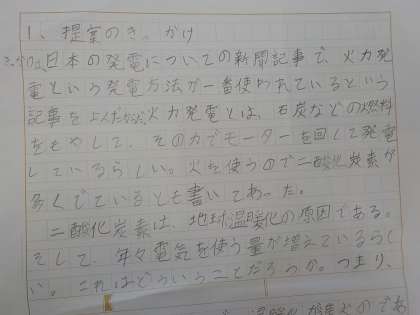 1、提案のきっかけ
ぼくは、日本の発電についての新聞記事で、火力発
電という発電方法が一番使われているという
記事をよんだ。火力発電とは、石炭などの燃料
をもやして、その力でモーターを回して発電
しているらしい。火を使うので二酸化炭素が
多くでているとも書いてあった。
二酸化炭素は、地球温暖化の原因である。
そして、年々電気を使う量が増えているらし
い。これはどういうことだろうか。つまり、